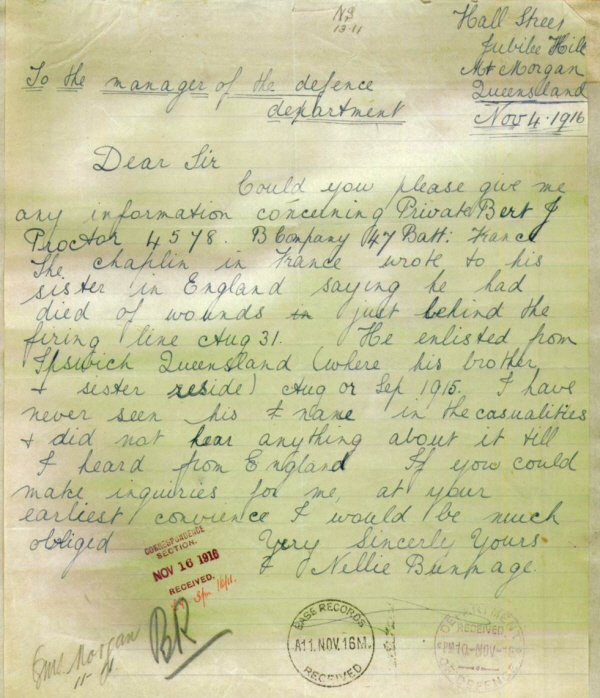 NS
13-11
Hall Street
Jubilee Hill
Mt Morgan
Queensland
Nov 4. 1916
To the manager of the defence
department
Dear Sir
Could you please give me
any information concuning Private Bert J
Proctor 4578. B Company 47 Batt: France
The chaplin in France wrote to his
sister in England saying he had
died of wounds in just behind the
firing line Aug 31. He enlisted from
Ipswich Queensland (where his brother
& sister reside) Aug or Sep 1915. I have
never seen his name in the casualities
& did not hear anything about it till
I heard from England If you could
make inquiries for me, at your
earliest convience I would be much
obliged Very Sincerely Yours.
Nellie Bunnage.
CORRESPONDENCE
SECTION.
NOV 16 1916
RECEIVED.
BR
Morgan
BASE RECORDS
A11. NOV. 16M.
RECEIVED
DEPARTMENT
RECEIVED
PM10-NOV-16
OF DEFENCE